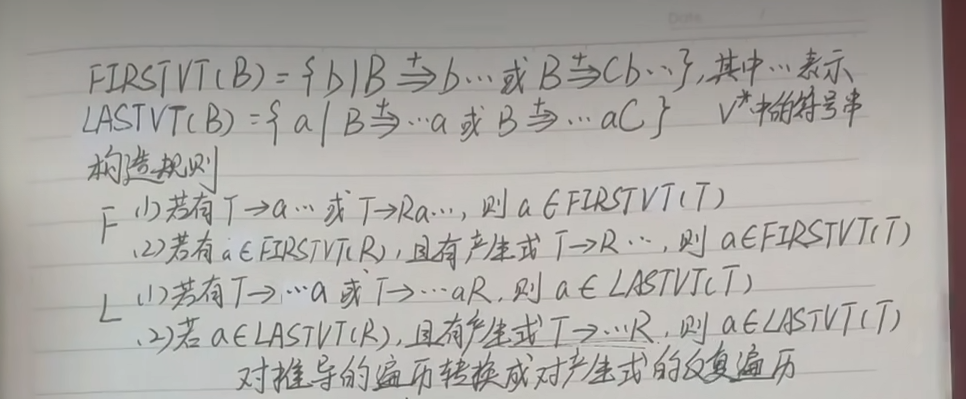 FIRSTVT(B)={b|B⇒⁺b…或B⇒⁺Cb…},其中…表示
LASTVT(B)={a|B⇒⁺…a或B⇒⁺…aC} V*中的符号串
构造规则
F (1)若有T→a…或T→Ra…,则a∈FIRSTVT(T)
(2)若有a∈FIRSTVT(R),且有产生式T→R…,则a∈FIRSTVT(T)
L (1)若有T→…a或T→…aR,则a∈LASTVT(T)
(2)若a∈LASTVT(R),且有产生式T→…R,则a∈LASTVT(T)
对推导的遍历转换成对产生式的反复遍历